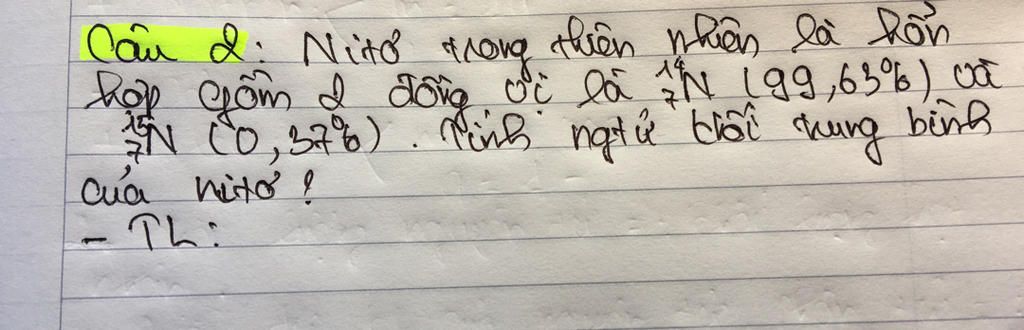 Câu 2: Nitơ trong thiên nhiên là hỗn
hợp gồm 2 đồng vị là ¹⁴₇N (99,63%) và
¹⁵₇N (0,37%). Tính ngtử khối trung bình
của nitơ?
- TL: